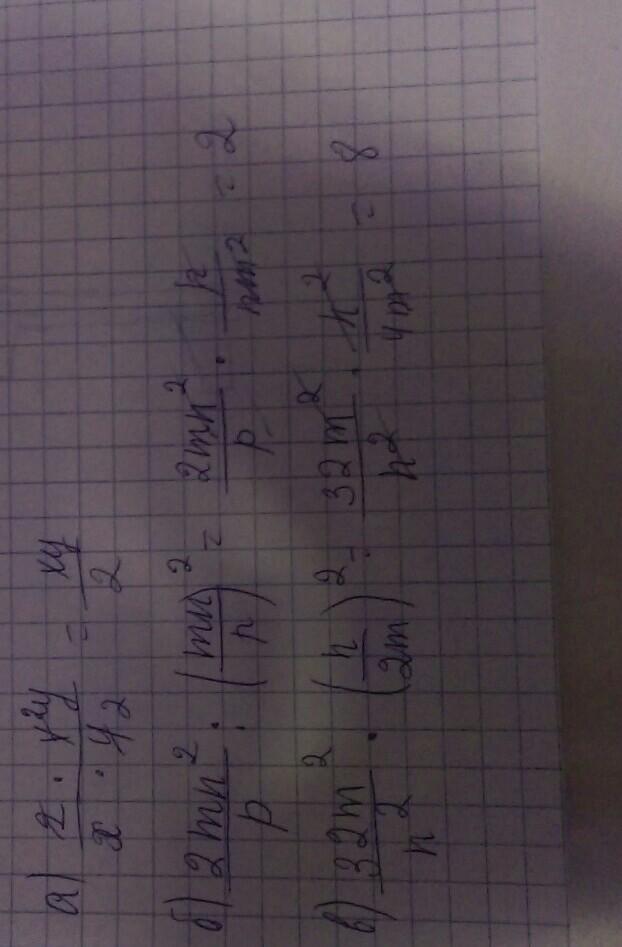 а) 2/x · x²y/42 = xy/2
б) 2mn²/p : (mn/p)² = 2mn²/p · p/nm² = 2
в) 32m²/n² · (n/2m)² = 32m²/n² · n²/4m² = 8